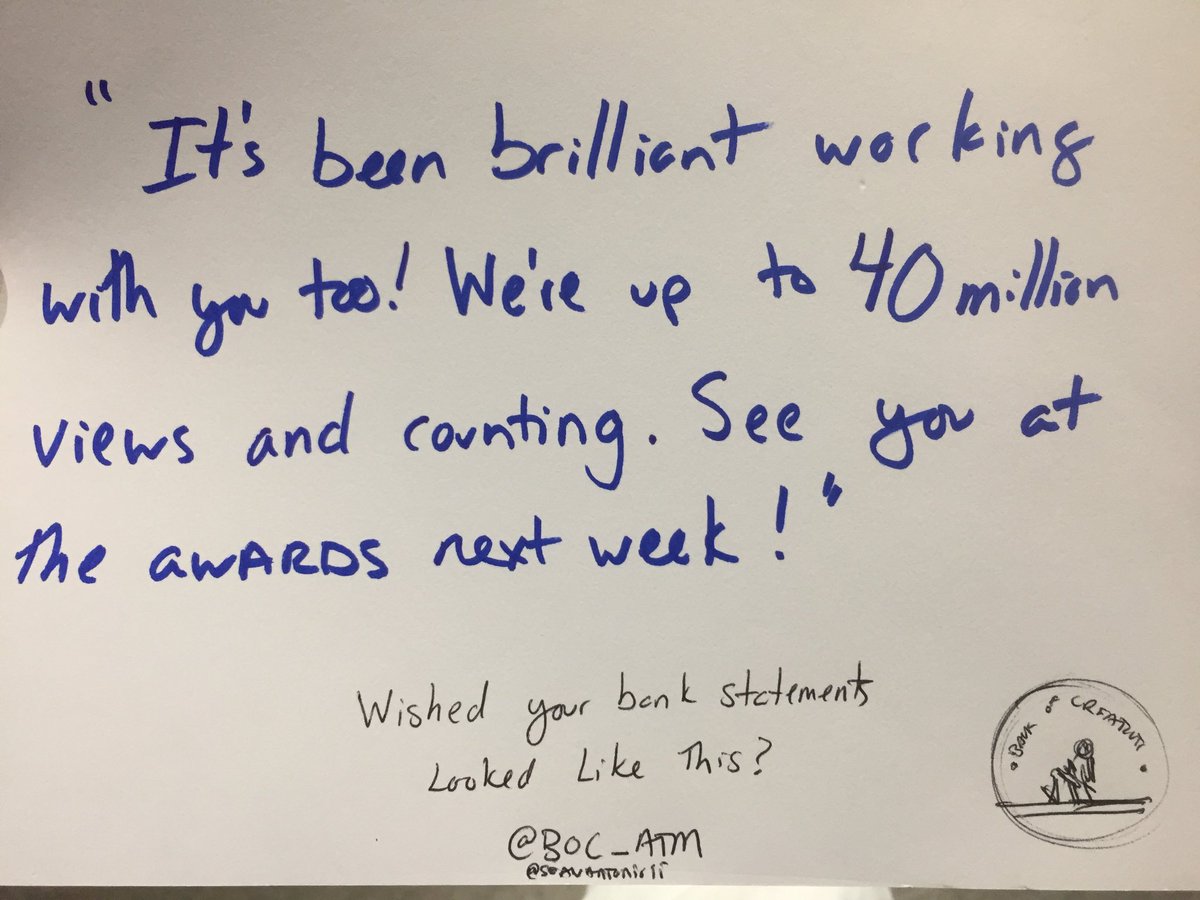 "It's been brilliant working
with you too! We're up to 40 million
views and counting. See you at
the awARDS next week!"
Wished your bank statements
Looked Like This?
BANK OF CREATIVITI
@BOC_ATM